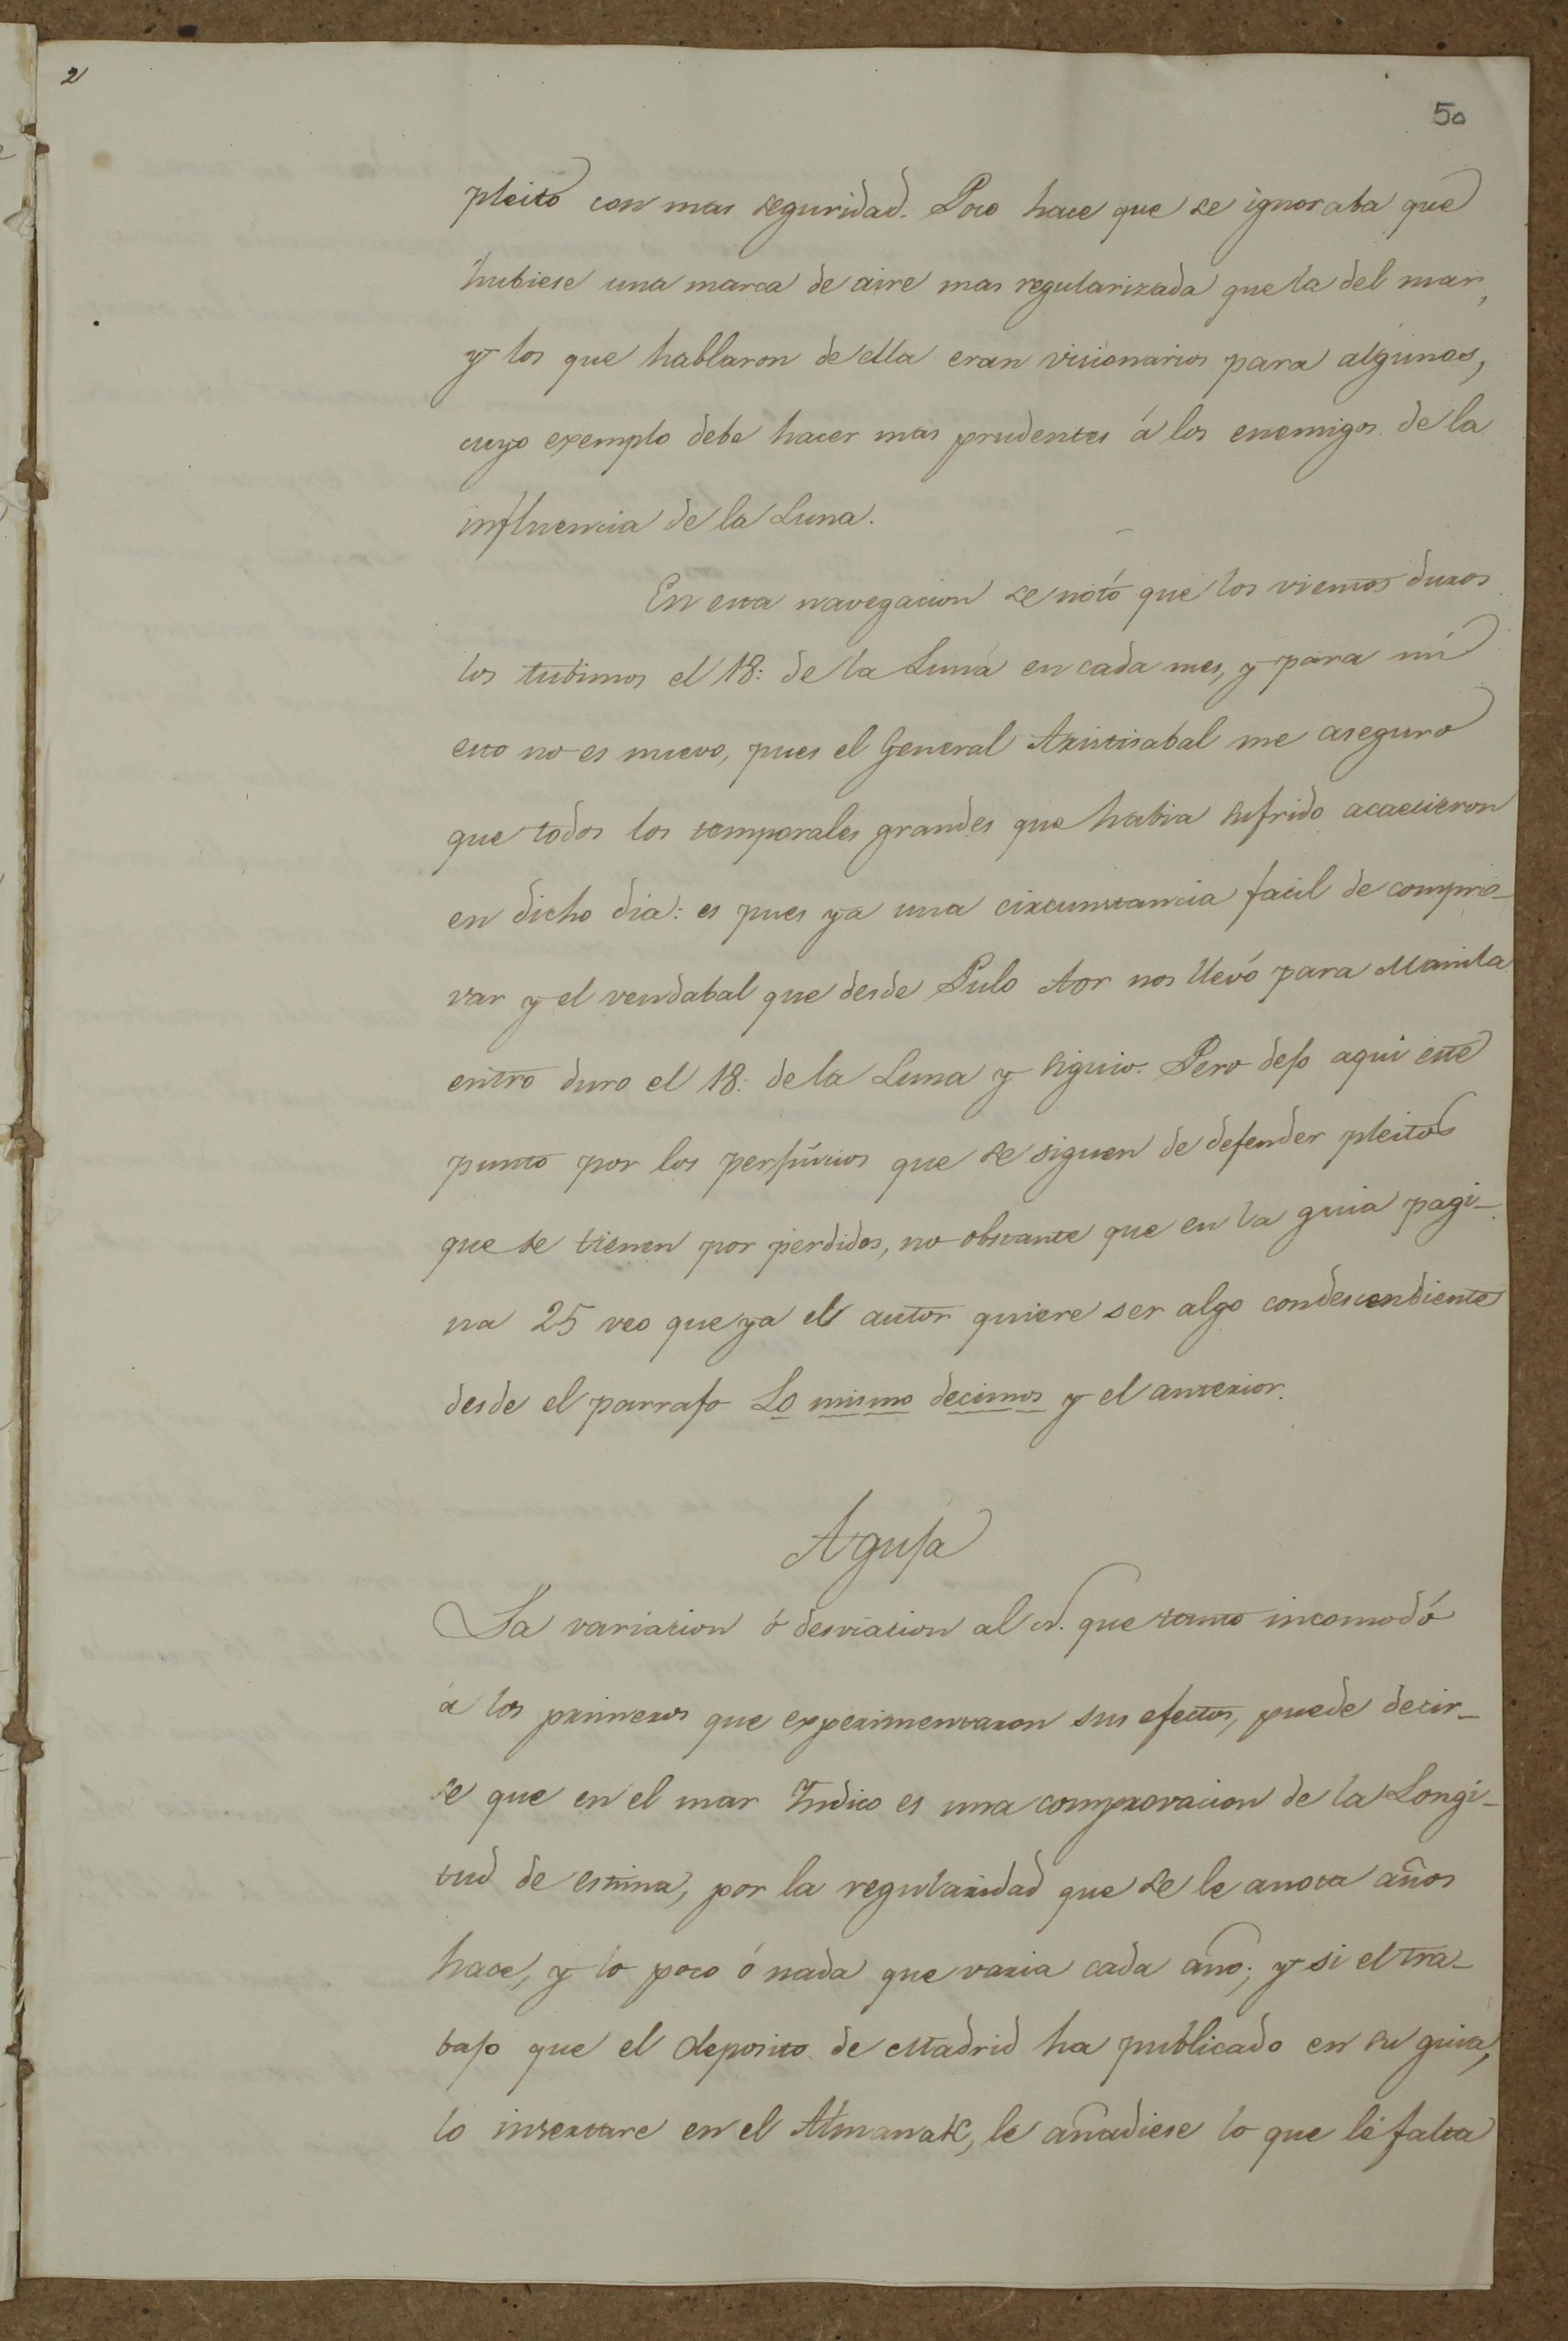 2
50
pleito con mas seguridad. Poco hace que se ignoraba que
hubiese una marea de aire mas regularizada que la del mar,
y los que hablaron de ella eran visionarios para algunos,
cuyo exemplo debe hacer mas prudentes á los enemigos de la
influencia de la Luna.
En esta navegacion se notó que los vientos duros
los tubimos el 18: de la Luna en cada mes, y para mí
esto no es nuevo, pues el General Aristisabal me aseguro
que todos los temporales grandes que habia sufrido acaecieron
en dicho dia: es pues ya una circunstancia facil de compro-
var y el vendabal que desde Pulo Aor nos llevó para Manila
entro duro el 18: de la Luna y siguio. Pero dejo aqui este
punto por los perjuicios que se siguen de defender pleitos
que se tienen por perdidos, no obstante que en la guia pagi-
na 25 veo que ya el autor quiere ser algo condescendiente
desde el parrafo Lo mismo decimos y el anterior.
Aguja
La variacion ó desviacion al N. que tanto incomodó
á los primeros que experimentaron sus efectos, puede decir-
se que en el mar Indico es una comprovacion de la Longi-
tud de estima, por la regularidad que se le anota años
hace, y lo poco ó nada que varia cada año; y si el tra-
bajo que el deposito de Madrid ha publicado en su guia,
lo insertare en el Almanak, le añadiese lo que le falta